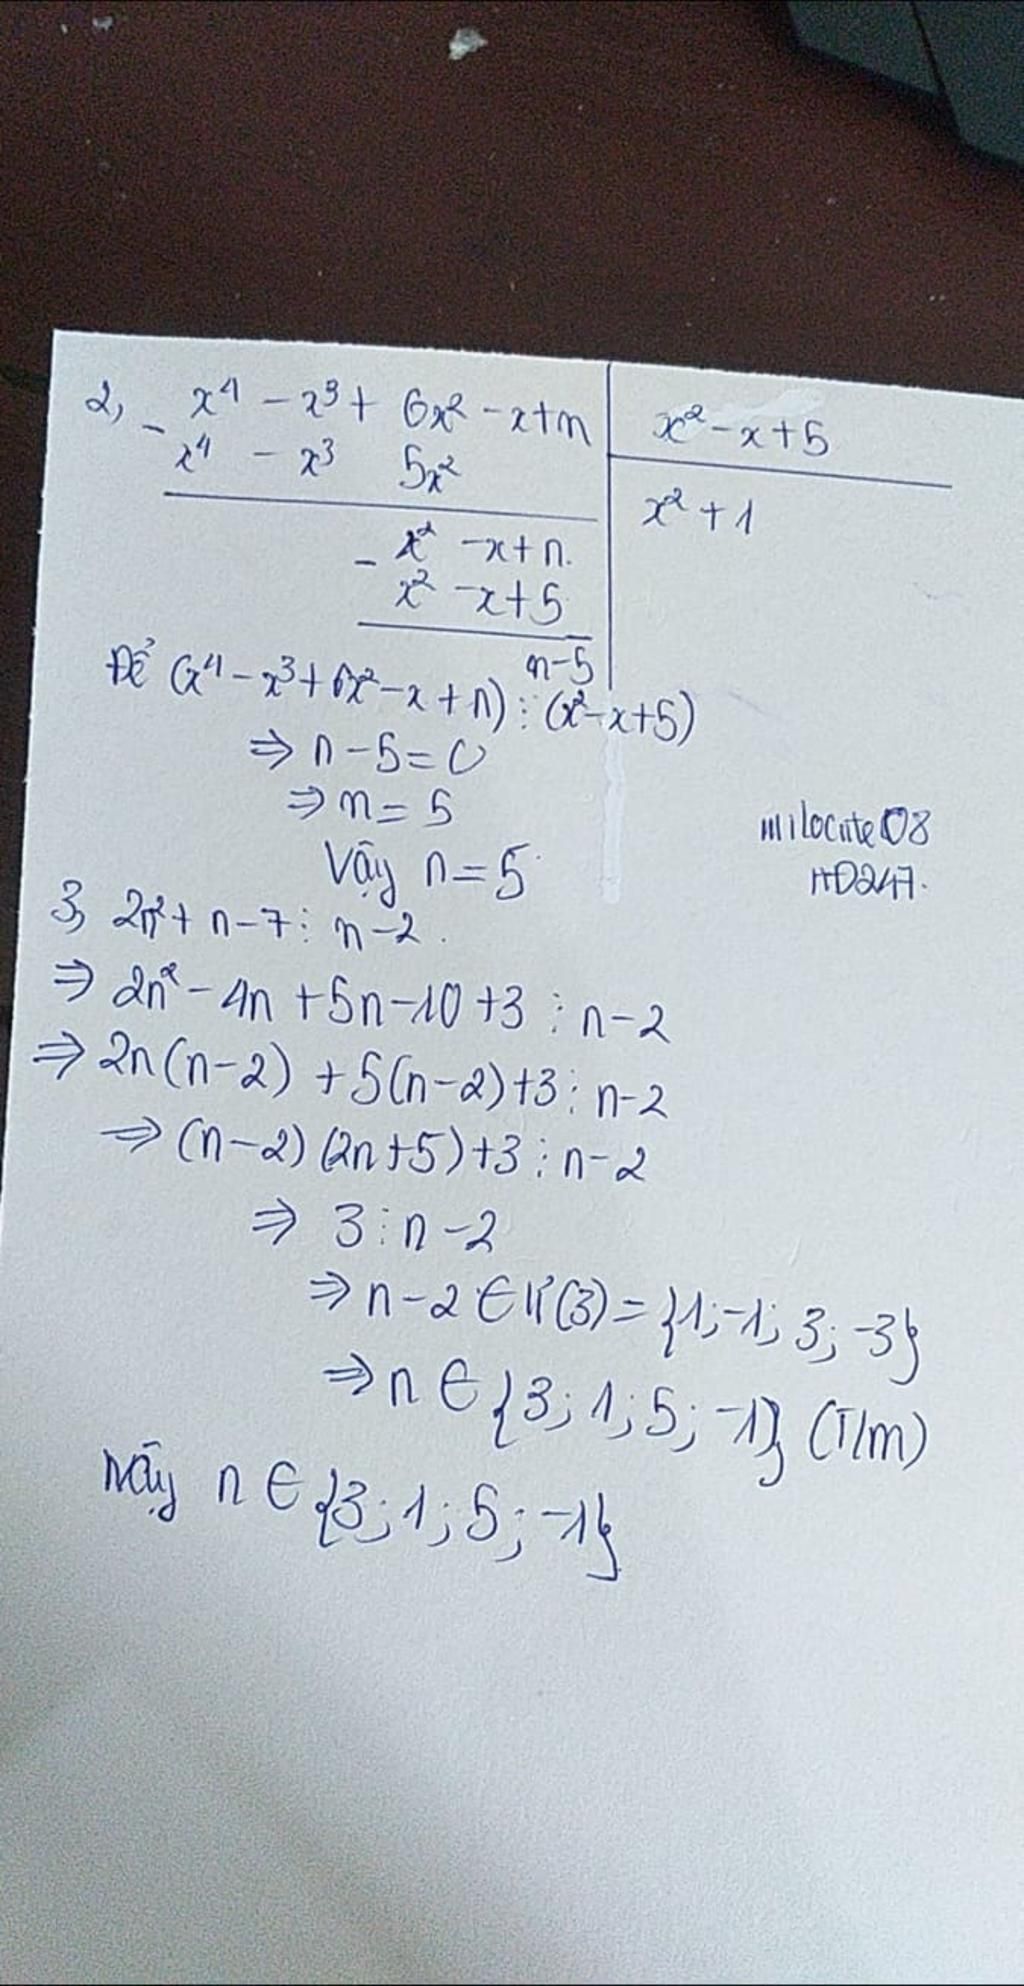 2, - x⁴ - x³ + 6x² - x + n | x² - x + 5
x⁴ - x³ 5x² | x² + 1
- x² - x + n.
x² - x + 5
n - 5
Để (x⁴ - x³ + 6x² - x + n) ⋮ (x² - x + 5)
⇒ n - 5 = 0
⇒ n = 5
Vậy n = 5
milocute08
HD247.
3, 2n² + n - 7 ⋮ n - 2.
⇒ 2n² - 4n + 5n - 10 + 3 ⋮ n - 2
⇒ 2n(n - 2) + 5(n - 2) + 3 ⋮ n - 2
⇒ (n - 2)(2n + 5) + 3 ⋮ n - 2
⇒ 3 ⋮ n - 2
⇒ n - 2 ∈ Ư(3) = {1; -1; 3; -3}
⇒ n ∈ {3; 1; 5; -1} (T/m)
Vậy n ∈ {3; 1; 5; -1}